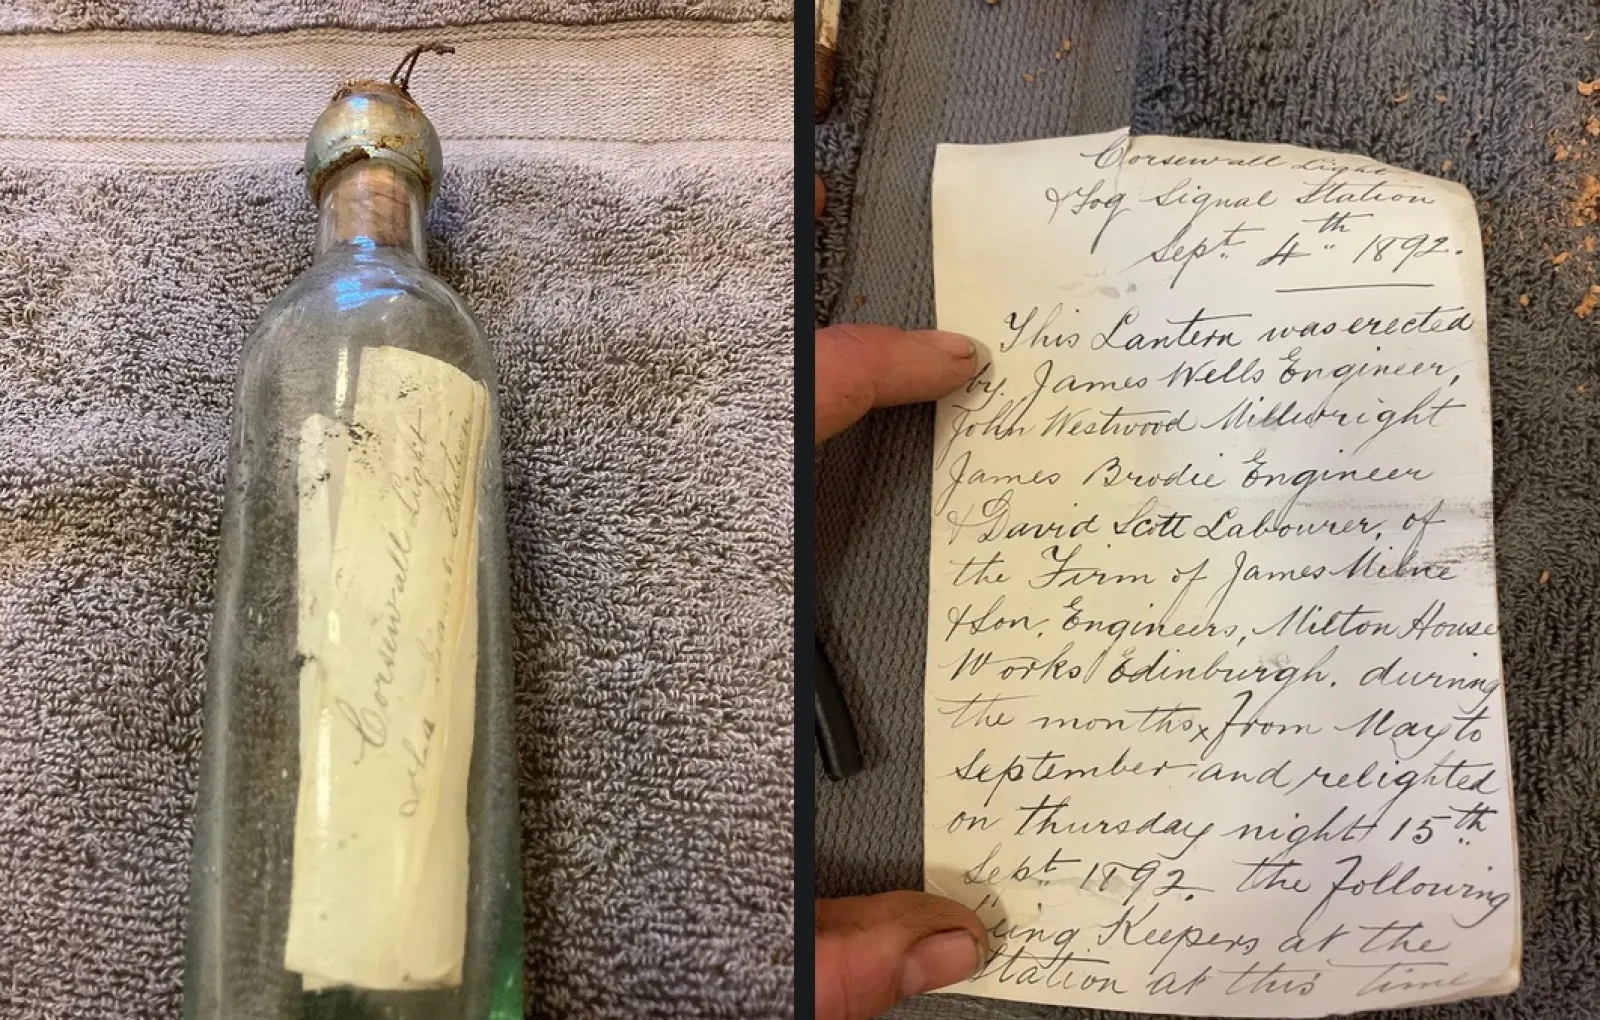 Corsewall Light
Corsewall Light
& Fog Signal Station
Sept. 4th 1892.
This Lantern was erected
by James Wells Engineer,
John Westwood Millwright
James Brodie Engineer
& David Scott Labourer, of
the Firm of James Milne
& Son, Engineers, Milton House
Works Edinburgh. during
the months x from May to
September and relighted
on thursday night 15th
Sept 1892. the following
being Keepers at the
Station at this time